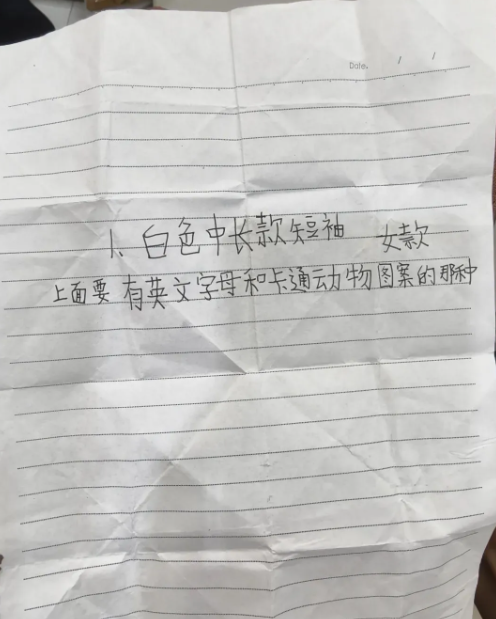 Date. / /
1、白色中长款短袖 女款
上面要有英文字母和卡通动物图案的那种